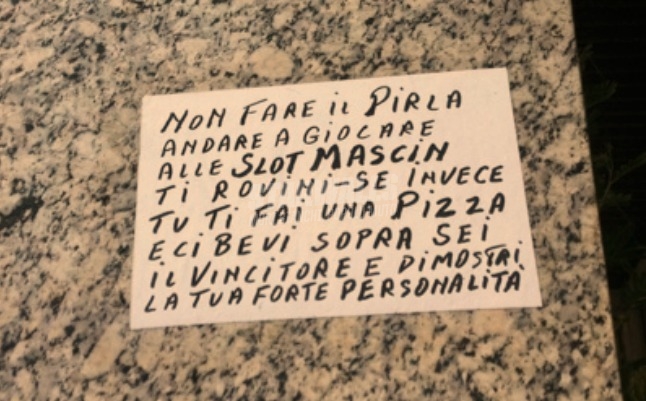 NON FARE iL PiRLA
ANDARE A GiOCARE
ALLE SLOT MASCiN
Ti ROViNi-SE iNVECE
TU Ti FAi UNA PiZZA
E Ci BEVi SOPRA SEi
iL ViNCiTORE E DiMOSTRi
LA TUA FORTE PERSONALiTÀ